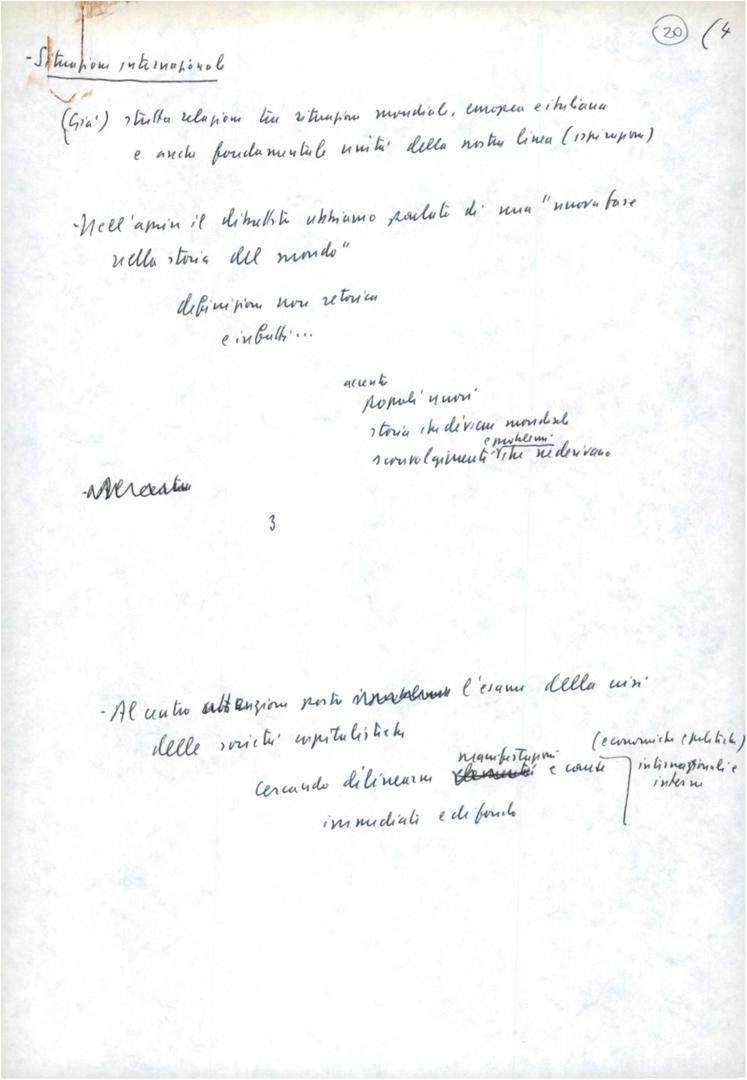 20 (4
- Situazione internazionale
(Già) stretta relazione tra situazione mondiale, europea e italiana
e anche fondamentale unità della nostra linea (ispirazione)
- Nell'aprire il dibattito abbiamo parlato di una "nuova fase
nella storia del mondo"
definizione non retorica
e infatti...
accento
popoli nuovi
storia che diviene mondiale
e problemi
sconvolgimenti che ne derivano
3
- Al centro attenzione posto l'esame della crisi
delle società capitalistiche
(economiche e politiche)
manifestazioni
cercando di linearne e cause internazionali e
interne
immediati e di fondo